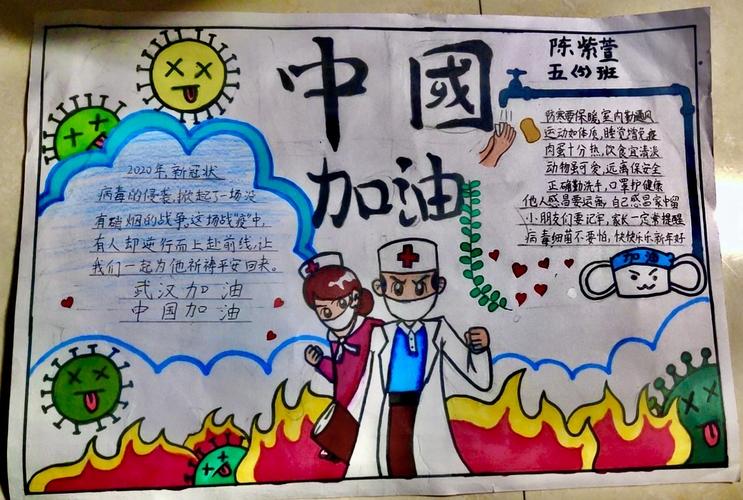 中國
加油
陈紫萱
五〈5〉班
2020年新冠状
病毒的侵袭,掀起了一场没
有硝烟的战争,这场战"疫"中,
有人却逆行而上赴前线,让
我们一起为他祈祷平安回来。
武汉加油
中国加油
防寒要保暖,室内勤通风
运动加体质,睡觉增免疫
肉蛋十分热,饮食宜清淡
动物要可爱,远离保安全
正确勤洗手,口罩护健康
他人感冒要远离,自己感冒家中留
小朋友们要记牢,家长一定来提醒
病毒细菌不要怕,快快乐乐新年好
加油